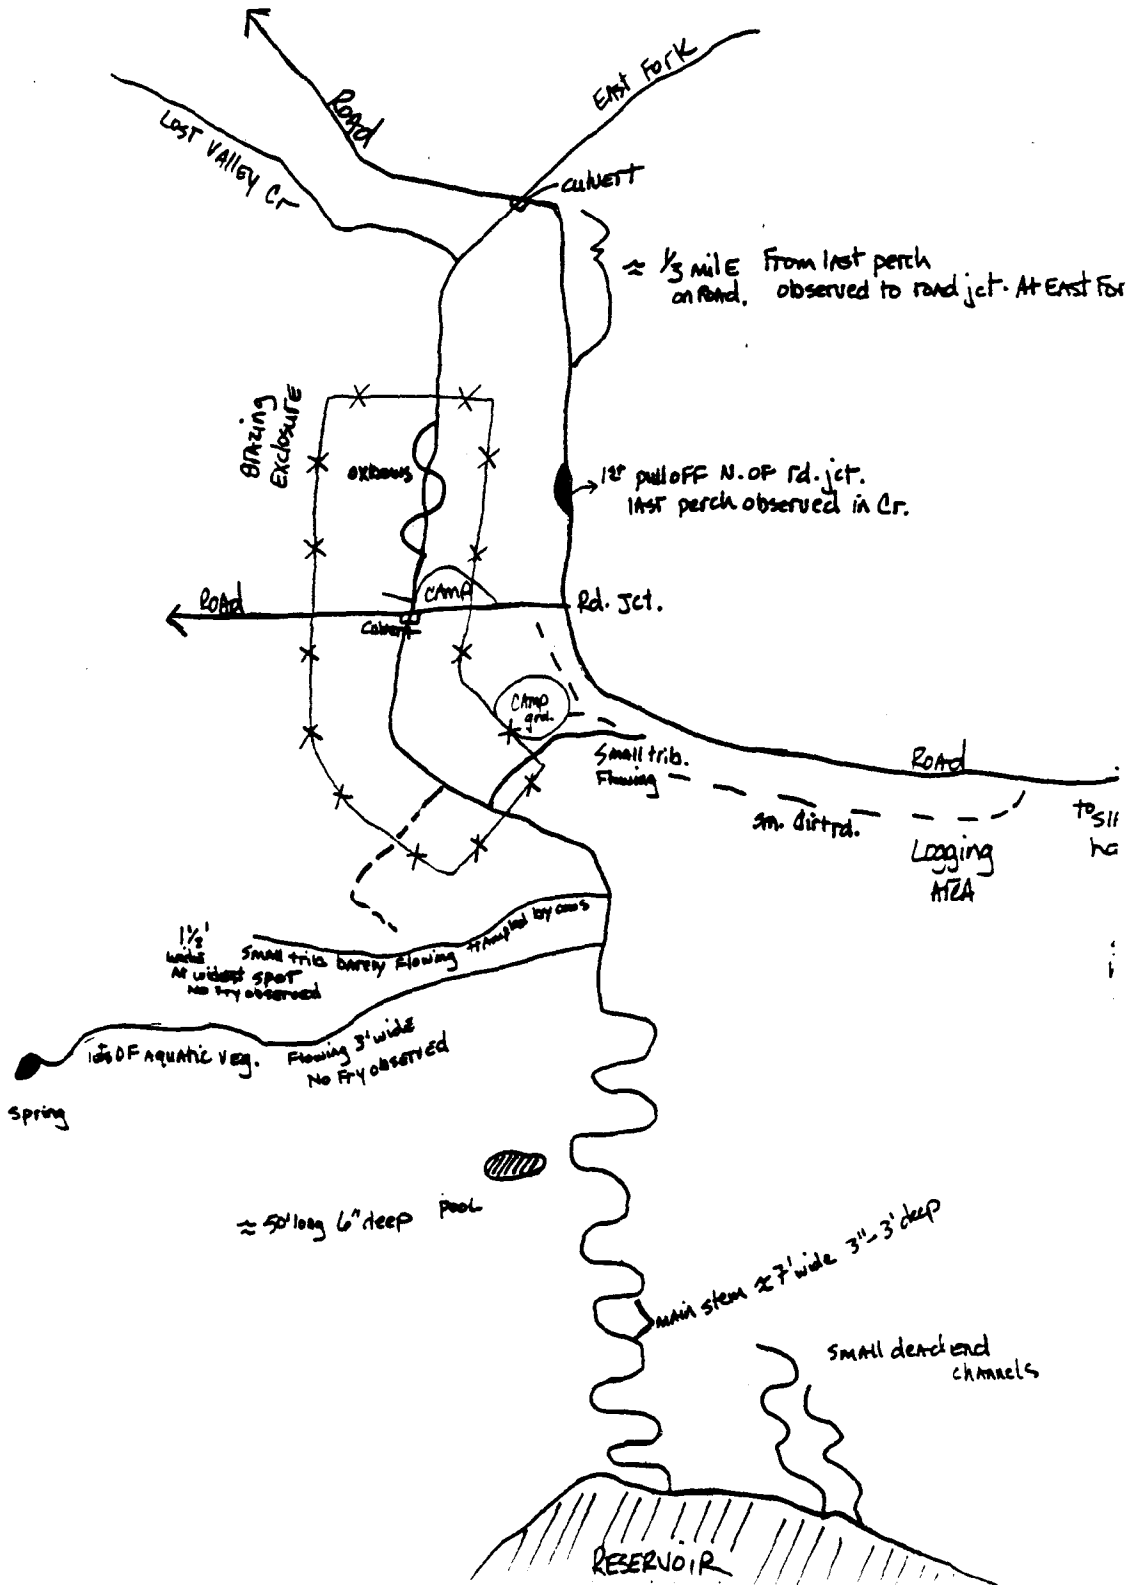 ROAD
EAST FORK
LOST VALLEY Cr
culvert
≈ 1/3 milE From last perch
on Road. observed to road jct. At EAST For
GrAzing
ExclosurE
oxbows
1st pulloff N. OF rd. jct.
last perch observed in Cr.
ROAD
CAMP
Rd. Jct.
Culvert
CAMP
grd.
Small trib.
Flowing
ROAD
Sm. dirt rd.
to
Logging
ArEA
1 1/2'
wide
At widest spot
No Fry observed
Small trib barely Flowing trampled by cows
lots OF AquAtic veg.
Flowing 3' wide
No Fry observed
Spring
≈ 50' long 6" deep pool
main stem ≈ 7' wide 3"-3' deep
Small dead end
channels
RESERVOIR